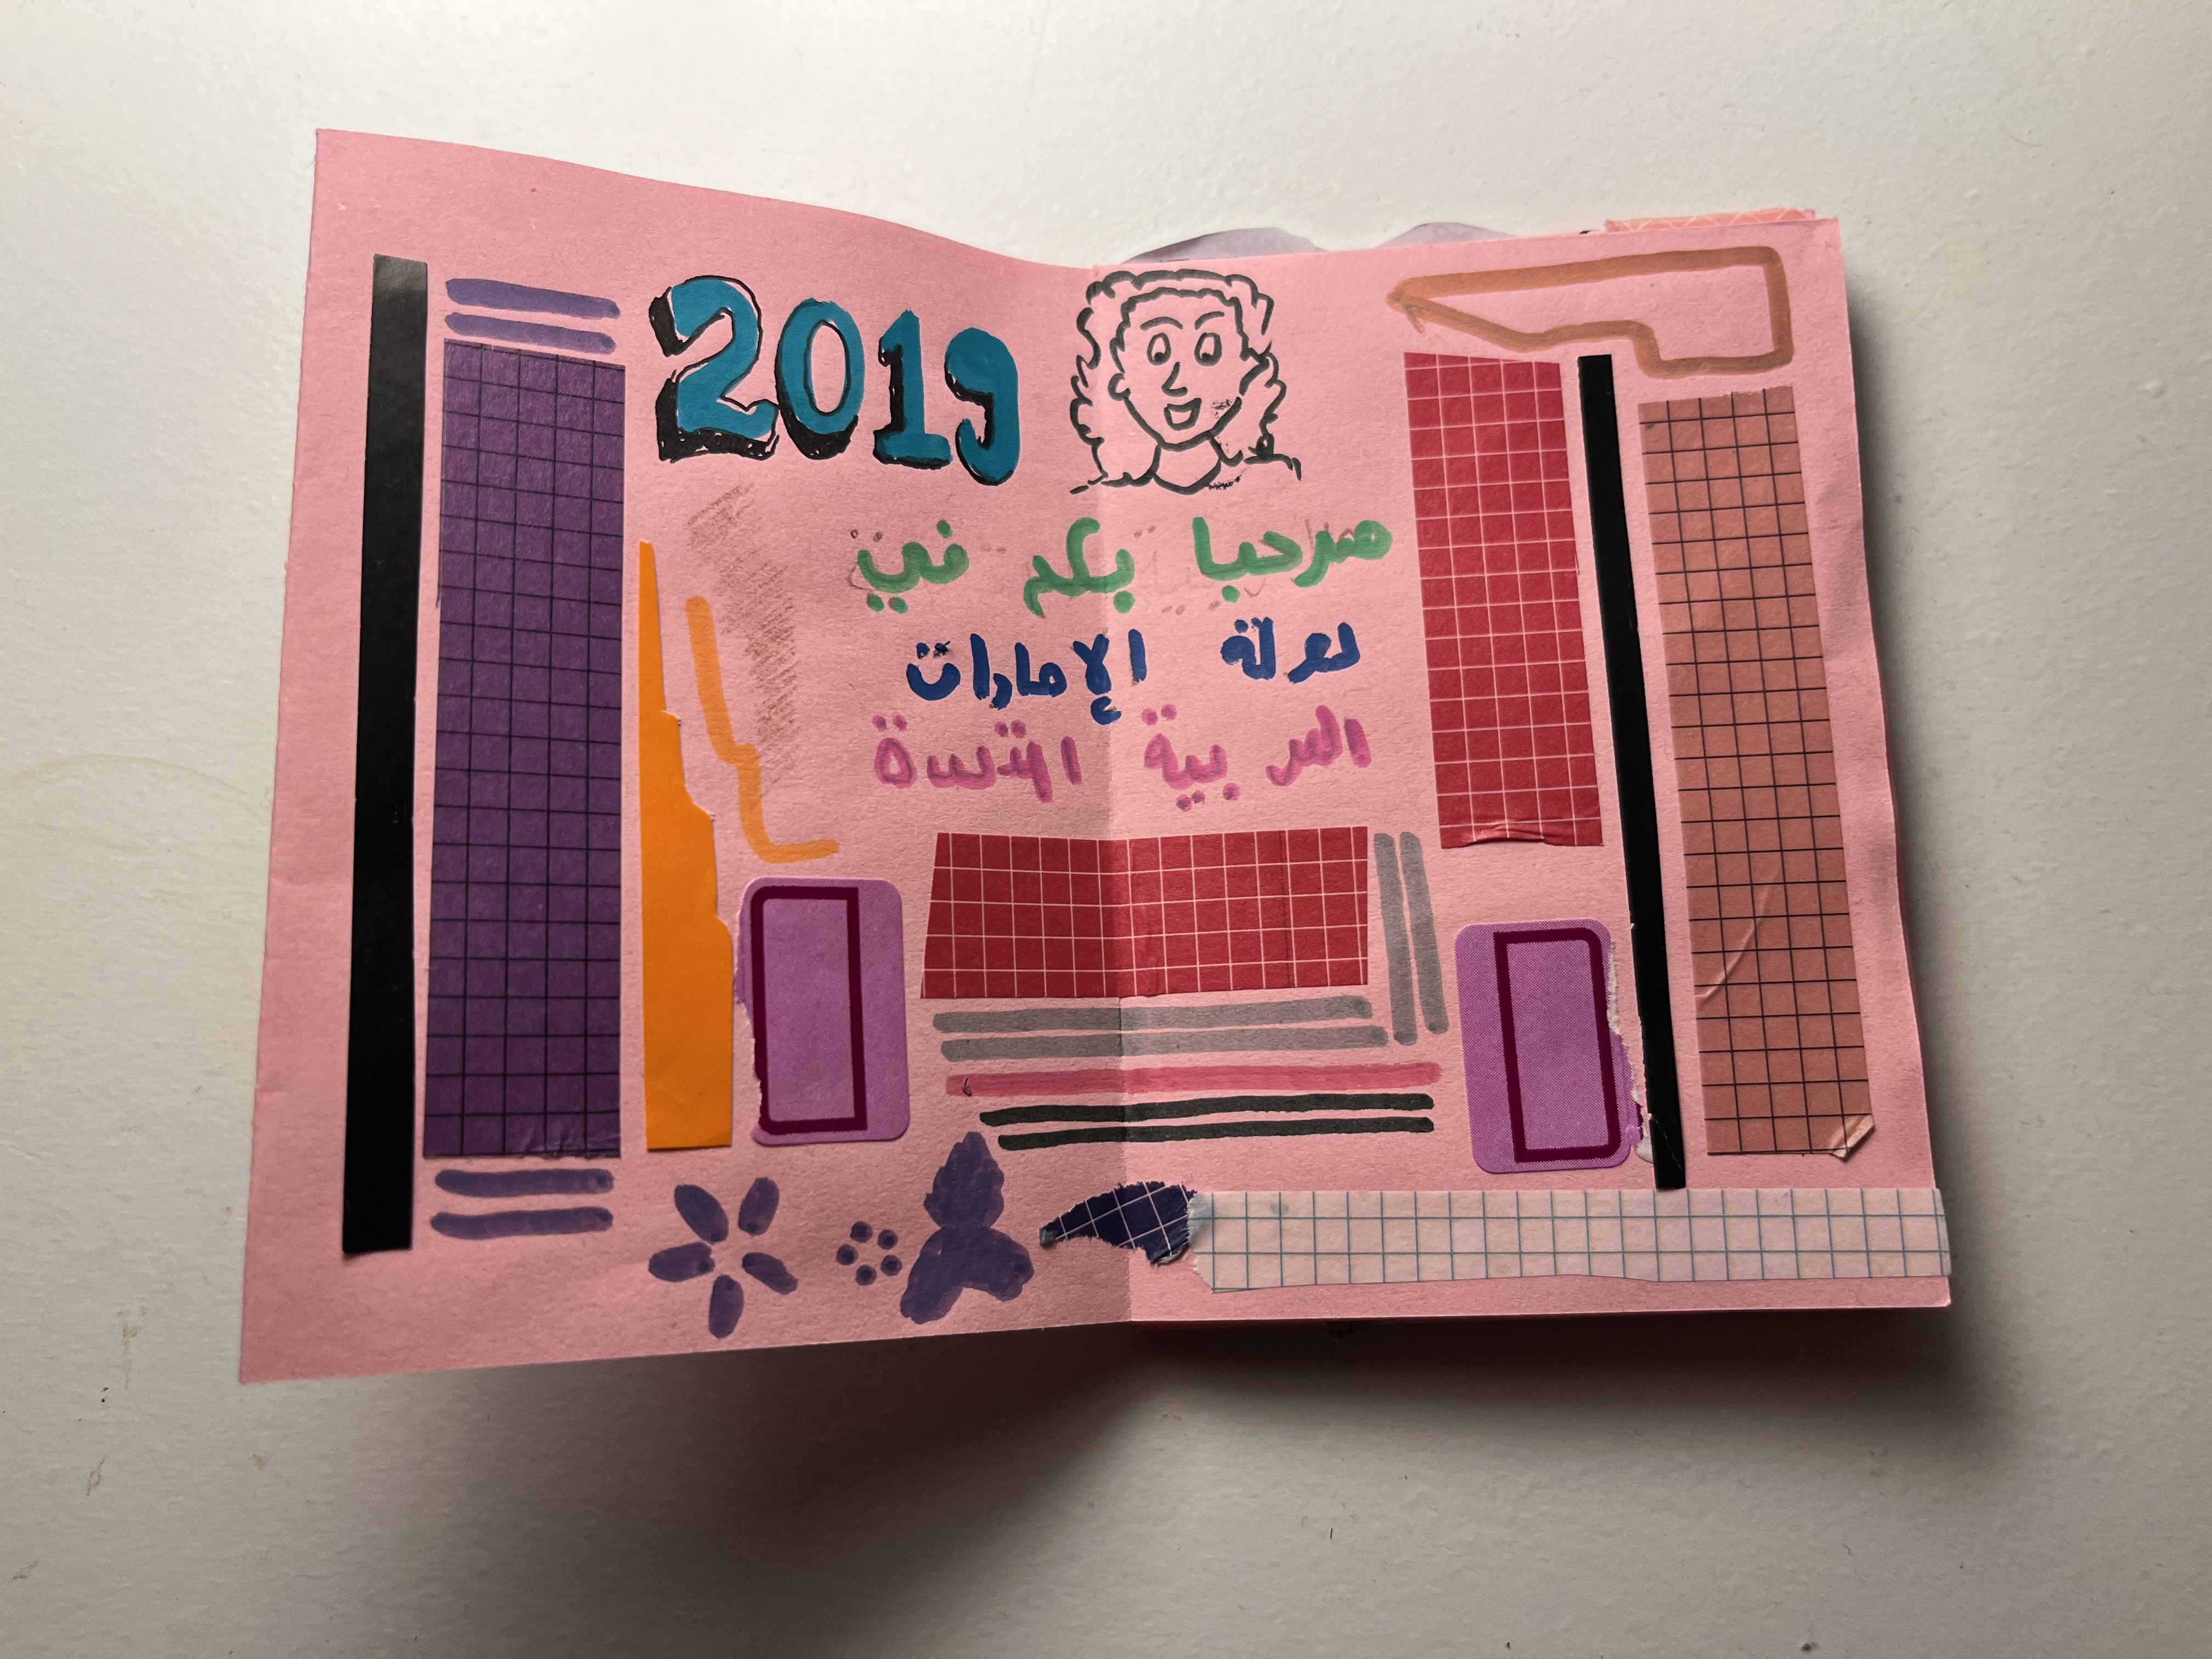 2019
مرحبا بكم في
دولة الإمارات
العربية المتحدة